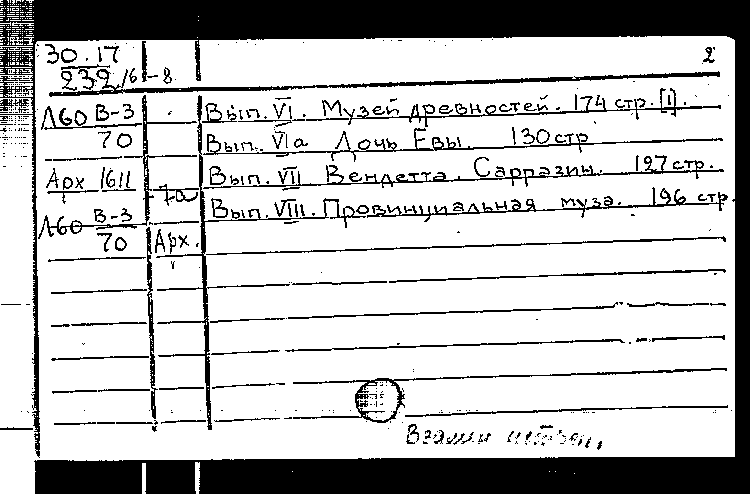 30.17 2
232/6-8
Л60 В-3 Вып. VI. Музей древностей. 174 стр. [1].
70 Вып. VIа Дочь Евы. 130 стр
Арх 1611 Вып. VII Вендетта. Сарразин. 127 стр.
-7а Вып. VIII. Провинциальная муза. 196 стр.
Л60 В-3
70 Арх.
Взамен